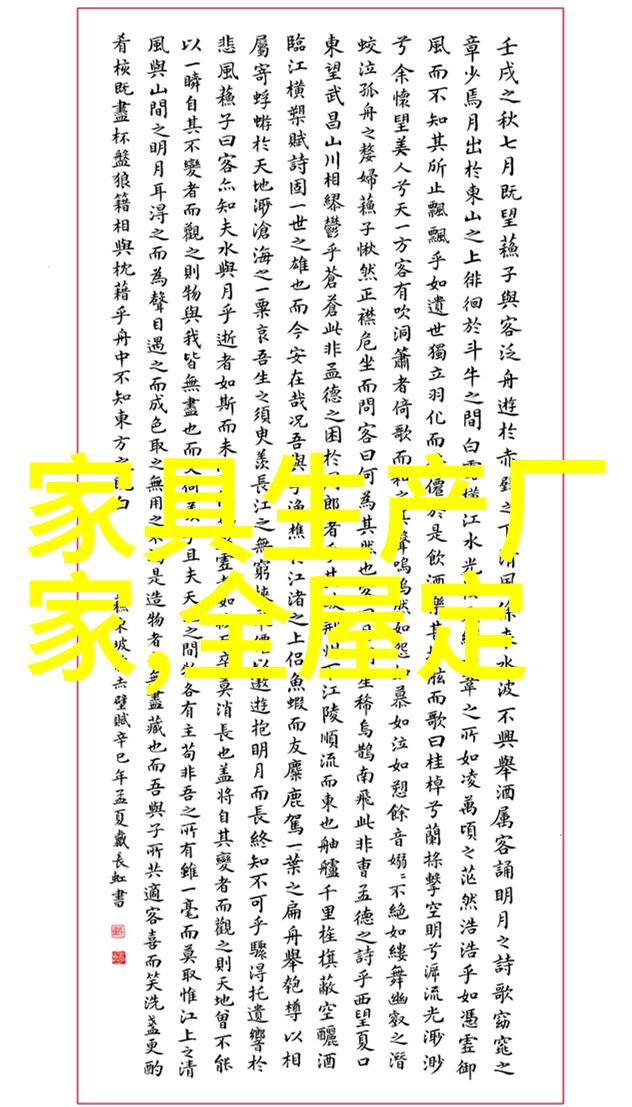 家具生产厂
家,全屋定
壬戌之秋七月既望蘓子與客泛舟遊於赤壁之下清風徐来水波不興舉酒属客誦明月之詩歌窈窕之
章少焉月出於東山之上徘徊於斗牛之間白露横江水光葦之所如凌萬頃之茫然浩浩乎如憑虛御
風而不知其所止飄飄乎如遺世獨立羽化而僊於是飲酒樂其舷而歌曰桂棹兮蘭槳擊空明兮泝流光渺渺
兮余懷望美人兮天一方客有吹洞簫者倚歌而和之其聲嗚嗚然如怨如慕如泣如愬餘音嫋〻不絶如縷舞幽壑之潛
蛟泣孤舟之嫠婦蘓子愀然正襟危坐而問客曰何為其然也客曰月明星稀烏鵲南飛此非曹孟德之詩乎西望夏口
東望武昌山川相繆鬱乎蒼蒼此非孟德之困於周郎者乎荆州下江陵順流而東也舳艫千里旌旗蔽空釃酒
臨江横槊賦詩固一世之雄也而今安在哉况吾與子漁樵於江渚之上侣魚蝦而友麋鹿駕一葉之扁舟舉匏樽以相
屬寄蜉蝣於天地渺滄海之一粟哀吾生之須臾羨長江之無窮挾僊以遨遊抱明月而長終知不可乎驟得托遺響於
悲風蘓子曰客亦知夫水與月乎逝者如斯而未虛者如彼而卒莫消長也盖将自其變者而觀之則天地曾不能
以一瞬自其不變者而觀之則物與我皆無盡也而又何羨乎且夫天地之間物各有主苟非吾之所有雖一毫而莫取惟江上之清
風與山間之明月耳得之而為聲目遇之而成色取之無用之不竭是造物者無盡藏也而吾與子所共適客喜而笑洗盞更酌
肴核既盡杯盤狼籍相與枕藉乎舟中不知東方之既白
蘓東坡赤壁賦辛巳年孟夏戴長虹書